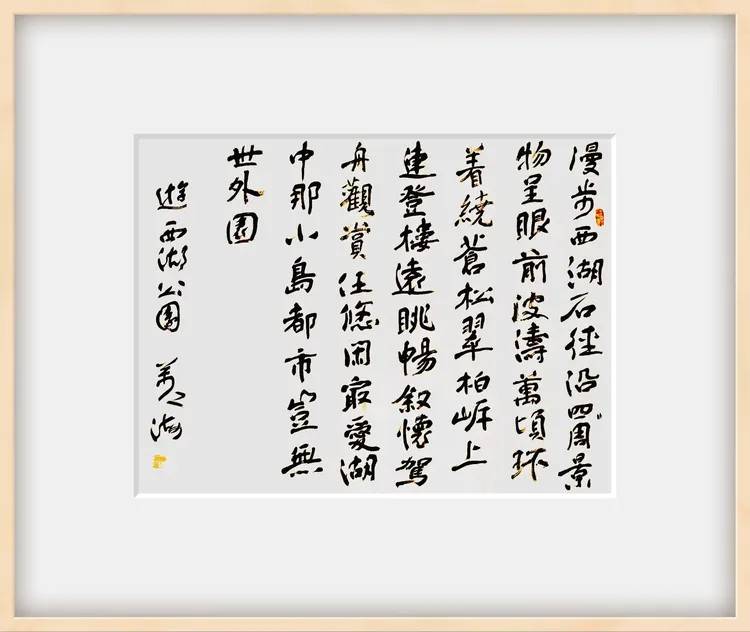 漫步西湖石徑沿四周景
物呈眼前波濤萬頃環
着繞蒼松翠柏岸上
連登樓遠眺暢叙懷駕
舟觀賞任悠閑最愛湖
中那小島都市豈無
世外園
遊西湖公園